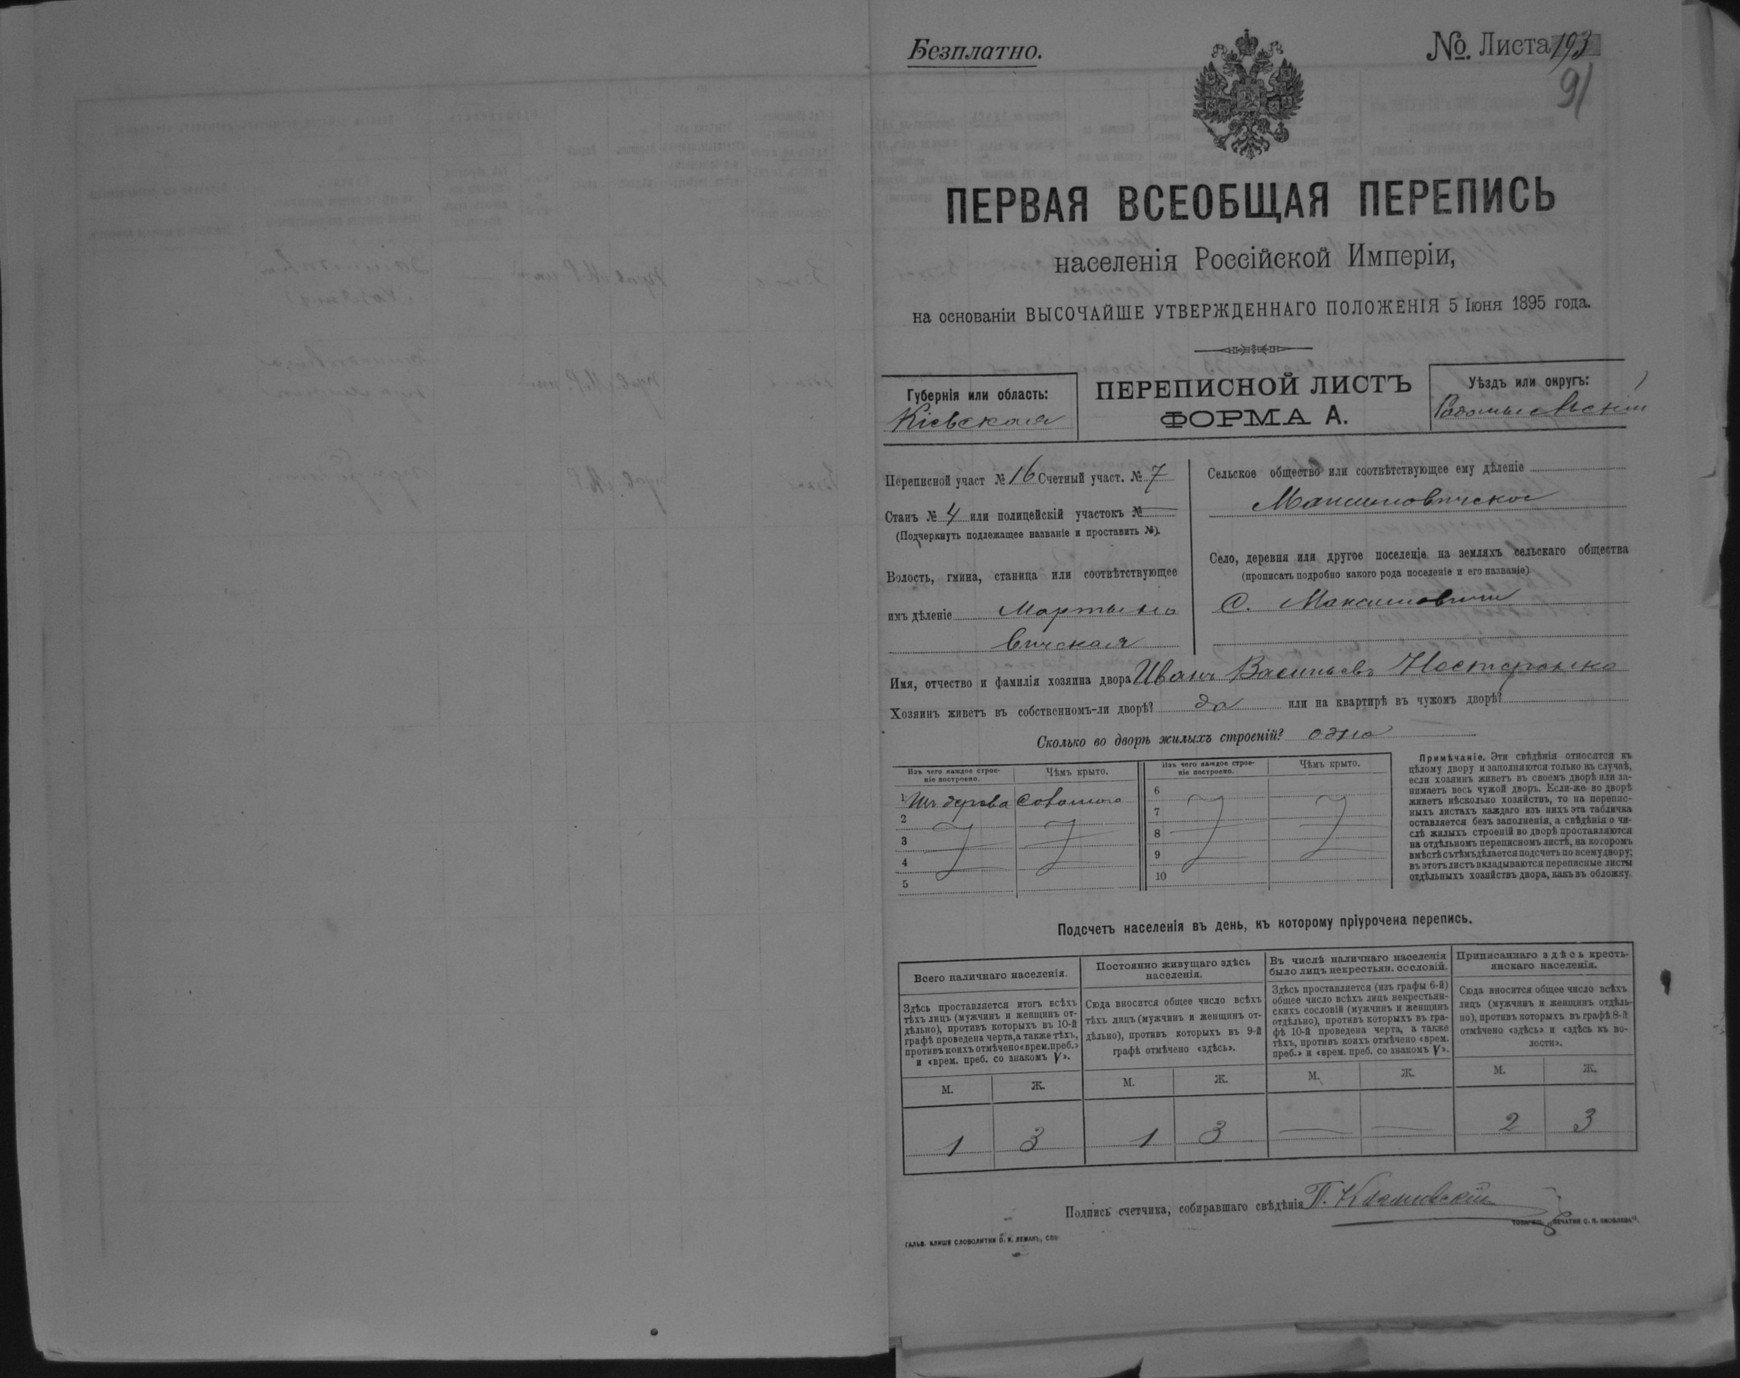 Безплатно.
№. Листа 193
91
ПЕРВАЯ ВСЕОБЩАЯ ПЕРЕПИСЬ
населенія Россійской Имперіи,
на основаніи ВЫСОЧАЙШЕ УТВЕРЖДЕННАГО ПОЛОЖЕНІЯ 5 Іюня 1895 года.
Губернія или область:
Кіевская
ПЕРЕПИСНОЙ ЛИСТЪ
ФОРМА А.
Уѣздъ или округъ:
Радомысльскій
Переписной участ № 16 Счетный участ. № 7
Станъ № 4 или полицейскій участокъ №
(Подчеркнуть подлежащее названіе и проставить №).
Волость, гмина, станица или соотвѣтствующее
имъ дѣленіе Мартыно
вичская
Сельское общество или соотвѣтствующее ему дѣленіе
Максимовичское
Село, деревня или другое поселеніе на земляхъ сельскаго общества
(прописать подробно какого рода поселеніе и его названіе)
С. Максимовичи
Имя, отчество и фамилія хозяина двора Иванъ Васильевъ
Хозяинъ живетъ въ собственномъ-ли дворѣ? да или на квартирѣ въ чужомъ дворѣ?
Сколько во дворѣ жилыхъ строеній? одно
Изъ чего каждое строе-
ніе построено.
Чѣмъ крыто.
1 Изъ дерева соломою
2
3
4
5
Изъ чего каждое строе-
ніе построено.
Чѣмъ крыто.
6
7
8
9
10
Примѣчаніе. Эти свѣдѣнія относятся къ
цѣлому двору и заполняются только въ случаѣ,
если хозяинъ живетъ въ своемъ дворѣ или за-
нимаетъ весь чужой дворъ. Если-же во дворѣ
живетъ нѣсколько хозяйствъ, то на перепис-
ныхъ листахъ каждаго изъ нихъ эта табличка
оставляется безъ заполненія, а свѣдѣнія о чи-
слѣ жилыхъ строеній во дворѣ проставляются
на отдѣльномъ переписномъ листѣ, на которомъ
вмѣстѣ съ тѣмъ дѣлается подсчетъ по всему двору;
въ этотъ листъ вкладываются переписные листы
отдѣльныхъ хозяйствъ двора, какъ въ обложку.
Подсчетъ населенія въ день, къ которому пріурочена перепись.
Всего наличнаго населенія.
Здѣсь проставляется итогъ всѣхъ
тѣхъ лицъ (мужчинъ и женщинъ от-
дѣльно), противъ которыхъ въ 10-й
графѣ проведена черта, а также тѣхъ,
противъ коихъ отмѣчено «врем. преб.»
и «врем. преб. со знакомъ V».
М. Ж.
1 3
Постоянно живущаго здѣсь
населенія.
Сюда вносится общее число всѣхъ
тѣхъ лицъ (мужчинъ и женщинъ от-
дѣльно), противъ которыхъ въ 9-й
графѣ отмѣчено «здѣсь».
М. Ж.
1 3
Въ числѣ наличнаго населенія
было лицъ некрестьян. сословій.
Здѣсь проставляется (изъ графы 6-й)
общее число всѣхъ лицъ некрестьян-
скихъ сословій (мужчинъ и женщинъ
отдѣльно), противъ которыхъ въ гра-
фѣ 10-й проведена черта, а также
тѣхъ, противъ коихъ отмѣчено «врем.
преб.» и «врем. преб. со знакомъ V».
М. Ж.
Приписаннаго здѣсь кресть-
янскаго населенія.
Сюда вносится общее число всѣхъ
лицъ (мужчинъ и женщинъ отдѣль-
но), противъ которыхъ въ графѣ 8-й
отмѣчено «здѣсь» и «здѣсь въ во-
лости».
М. Ж.
2 3
Подпись счетчика, собиравшаго свѣдѣнія П.
ТОВАРИЩ. „ПЕЧАТНИ С. П. ЯКОВЛЕВА".
ГАЛЬВ. КЛИШЕ СЛОВОЛИТНИ О. И. ЛЕМАНЪ, СПБ